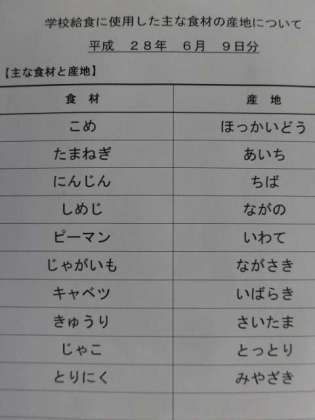 学校給食に使用した主な食材の産地について
平成 28年 6月 9日分
【主な食材と産地】
食材 産地
こめ ほっかいどう
たまねぎ あいち
にんじん ちば
しめじ ながの
ピーマン いわて
じゃがいも ながさき
キャベツ いばらき
きゅうり さいたま
じゃこ とっとり
とりにく みやざき